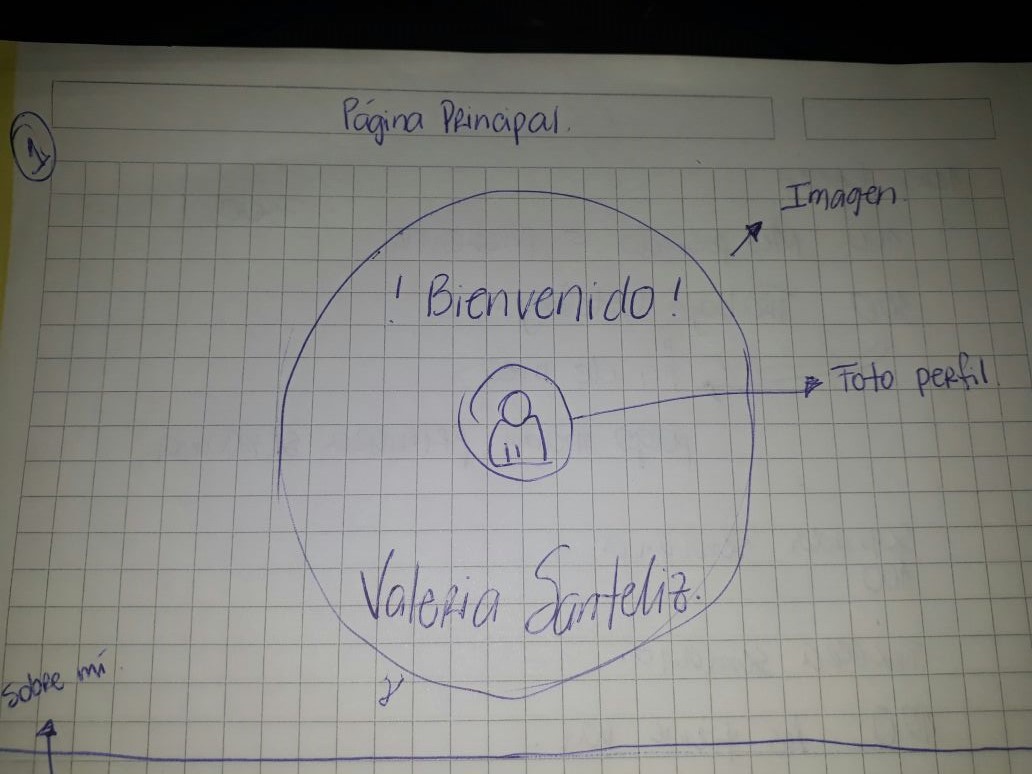 Página Principal.
1
Imagen
! Bienvenido !
Foto perfil.
Valeria Santeliz.
Sobre mí.